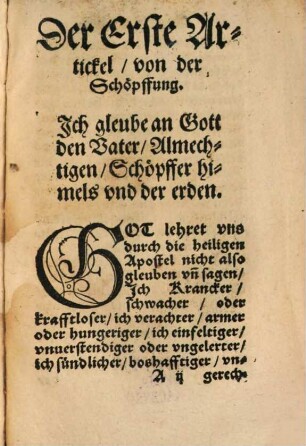 Der Erste Ar-
tickel / von der
Schöpffung.
Ich gleube an Gott
den Vater / Almech-
tigen / Schöpffer hi-
mels vnd der erden.
GOT lehret vns
durch die heiligen
Apostel nicht also
gleuben vn̄ sagen /
Ich Krancker /
schwacher / oder
krafftloser / ich verachter / armer
oder hungeriger / ich einfeltiger /
vnuerstendiger oder vngelerter /
ich sündlicher / boshafftiger / vn-
A ij gerech-